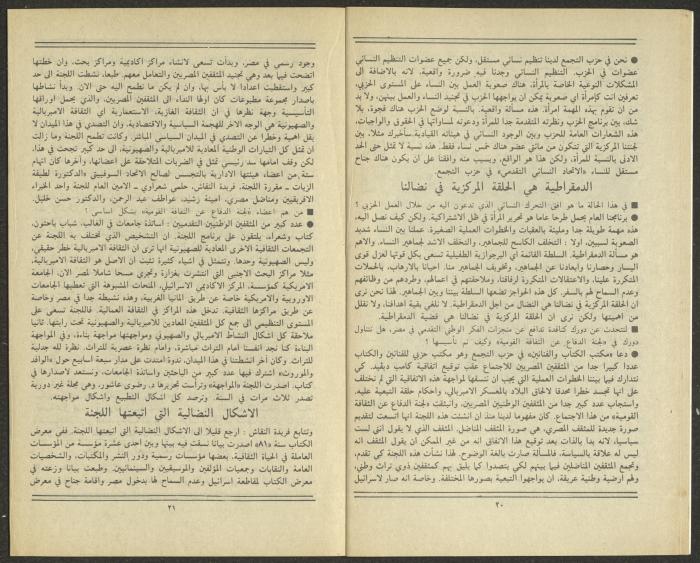 ● نحن في حزب التجمع لدينا تنظيم نسائي مستقل، ولكن جميع عضوات التنظيم النسائي
عضوات في الحزب. التنظيم النسائي وجدنا فيه ضرورة واقعية، لانه بالاضافة الى
المشكلات النوعية الخاصة بالمرأة، هناك صعوبة العمل بين النساء على المستوى الحزبي،
تعرفين انت كامرأة اي صعوبة يمكن ان يواجهها الحزب في تجنيد النساء والعمل بينهن، ولا بد
من ان تقوم بهذه المهمة امرأة. هذه مسألة واقعية. بالنسبة لوضع الحزب هناك فجوة، بلا
شك، بين برنامج الحزب ونظرته المتقدمة جدا للمرأة ودعوته لمساواتها في الحقوق والواجبات،
هذه الشعارات العامة للحزب وبين الوجود النسائي في هيئاته القيادية. سأخبرك مثلا، بين
لجنتنا المركزية التي تتكون من مائتي عضو هناك خمس نساء فقط. هذه نسبة لا تمثل حتى الحد
الادنى بالنسبة للمرأة، ولكن هذا هو الواقع، وبسبب منه وافقنا على ان يكون هناك جناح
مستقل للنساء «الاتحاد النسائي التقدمي» في حزب التجمع.
الدمقراطية هي الحلقة المركزية في نضالنا
■ في هذا الحالة ما هو افق التحرك النسائي الذي تدعون اليه من خلال العمل الحزبي ؟
● برنامجنا العام يحمل طرحا عاما هو تحرير المرأة في ظل الاشتراكية. ولكن كيف نصل اليه،
هذه مهمة طويلة جدا ومليئة بالعقبات والخطوات العملية الصغيرة. عملنا بين النساء شديد
الصعوبة لسببين، اولا : التخلف الكاسح للجماهير، والتخلف الاشد لجماهير النساء. والاهم
هو مسألة الدمقراطية. السلطة القائمة اي البرجوازية الطفيلية تسعى بكل قوتها لعزل قوى
اليسار وحصارنا وابعادنا عن الجماهير، وتخويف الجماهير منا. احيانا بالارهاب، بالحملات
المتكررة علينا، والاعتقالات المتكررة لرفاقنا، وملاحقتهم في اعمالهم، وطردهم من وظائفهم
وعدم السماح لهم بالسفر. كل هذه الحواجز تضعها السلطة بيننا وبين الجماهير. لهذا نحن نرى
ان الحلقة المركزية في نضالنا هي النضال من اجل الدمقراطية. لا نلغي بقية اهدافنا، ولا نقلل
من اهميتها ولكن نرى ان الحلقة المركزية في نضالنا هي قضية الدمقراطية.
■ لنتحدث عن دورك كناقدة تدافع عن منجزات الفكر الوطني التقدمي في مصر، هل نتناول
دورك في «لجنة الدفاع عن الثقافة القومية» وكيف تم تأسيسها ؟
● دعا «مكتب الكتاب والفنانين» في حزب التجمع وهو مكتب حزبي للفنانين والكتاب
عددا كبيرا جدا من المثقفين المصريين للاجتماع عقب توقيع اتفاقية كامب ديفيد. كي
نتدارك فيها بيننا الخطوات العملية التي يجب ان ننسقها لمواجهة هذه الاتفاقية التي لم تختلف
على انها تجسد خطرا محدقا لالحاق البلاد بالمعسكر الامبريالي، واحكام حلقة التبعية عليه.
واستجاب عدد كبير جدا من المثقفين الوطنيين المصريين، وانبثقت «لجنة الدفاع عن الثقافة
القومية» من هذا الاجتماع. كان مفهوما لدينا منذ ان انشئت هذه اللجنة انها اتسعت لتقديم
صورة جديدة للمثقف المصري، هي صورة المثقف المناضل. المثقف الذي لا يقول انني لست
سياسيا، لانه بدا بالذات بعد توقيع هذا الاتفاق انه من غير الممكن ان يقول المثقف انه
ليس له علاقة بالسياسة. فالمسألة صارت بالغة الوضوح. لهذا نشأت هذه اللجنة كي تقدم،
وتجمع المثقفين المناضلين فيما بينهم لكي يتصدوا كما يليق بهم كمثقفين ذوي تراث وطني،
ولهم ارضية وطنية عريقة، ان يواجهوا التبعية بصورها المختلفة. وخاصة انه صار لاسرائيل
٢٠
وجود رسمي في مصر، وبدأت تسعى لانشاء مراكز اكاديمية ومراكز بحث، وان خطتها
اتضحت فيها بعد وهي تجنيد المثقفين المصريين والتعامل معهم. طبعا، نشطت اللجنة الى حد
كبير واستقطبت اعدادا لا بأس بها، وان لم يكن ما نطمح اليه حتى الان. وبدأ نشاطها
باصدار مجموعة مطبوعات كان اولها النداء الى المثقفين المصريين، والذي يحمل اوراقها
التأسيسية وجهة نظرها في ان الثقافة الغازية، الاستعمارية اي الثقافة الامبريالية
والصهيونية هي الوجه الاخر للهجمة السياسية والاقتصادية، وان التصدي في هذا الميدان لا
يقل اهمية وخطرا عن التصدي في الميدان السياسي المباشر. وكانت تطمح اللجنة وما زالت
ان تمثل كل التيارات الوطنية المعادية للامبريالية والصهيونية، الى حد كبير نجحت في هذا،
لكن وقف امامها سد رئيسي تمثل في الضربات المتلاحقة على اعضائها، وآخرها كان اتهام
ستة، من اعضاء هيئتها الادارية بالتجسس لصالح الاتحاد السوفييتي «الدكتورة لطيفة
الزيات ـ مقررة اللجنة، فريدة النقاش، حلمي شعراوي ـ الامين العام للجنة واحد الخبراء
الافريقيين ومناضل مصري، أمينة رشيد، عواطف عبد الرحمن، والدكتور حسن خليل.
■ من هم اعضاء «لجنة الدفاع عن الثقافة القومية» بشكل اساسي ؟
● عدد كبير من المثقفين الوطنيين التقدميين : اساتذة جامعات في الغالب، شباب باحثون،
كتاب وشعراء، يلتقون على برنامج اللجنة. ان التشخيص الذي تختلف به اللجنة عن
التجمعات الثقافية الاخرى المعادية للصهيونية انها ترى ان الثقافة الامبريالية خطر حقيقي،
وليس الصهيونية وحدها. وتتمثل في اشياء كثيرة تثبت ان الاصل هو الثقافة الامبريالية،
مثلا مراكز البحث الاجنبي التي انتشرت بغزارة وتجري مسحا شاملا لمصر الان، الجامعة
الامريكية كمؤسسة، المركز الاكاديمي الاسرائيلي، المنحات المشبوهة التي تعطيها الجامعات
الاوروبية والامريكية خاصة عن طريق المانيا الغربية، وهذه نشيطة جدا في مصر وخاصة
عن طريق مراكزها الثقافية. تدخل هذه المراكز في الثقافة العمالية. فاللجنة تسعى على
المستوى التنظيمي الى جمع كل المثقفين المعادين للامبريالية والصهيونية تحت رايتها. ثانيا
ملاحقة كل اشكال النشاط الامبريالي والصهيوني ومواجهتها مواجهة بناءة، وفي المواجهة
البناءة كنا نجد انفسنا امام التراث مباشرة، وامام نظرة عصرية للتراث. نظرة نقدية جدلية
للتراث. وكان آخر انشطتنا في هذا الميدان، ندوة امتدت على مدار سبعة اسابيع حول «الوافد
والموروث» اشترك فيها عدد كبير من الباحثين واساتذة الجامعات، ونستعد لاصدارها في
كتاب. اصدرت اللجنة «المواجهة» ورأست تحريرها د. رضوى عاشور، وهي مجلة غير دورية
تصدر ثلاث مرات في السنة. وترصد كل اشكال التطبيع واشكال مواجهته.
الاشكال النضالية التي اتبعتها اللجنة
وتتابع فريدة النقاش : ارجع قليلا الى الاشكال النضالية التي اتبعتها اللجنة. ففي معرض
الكتاب سنة «٨١» اصدرت بيانا نسقت فيه بينها وبين احدى عشرة مؤسسة من المؤسسات
العاملة في الحياة الثقافية، بعضها مؤسسات رسمية ودور النشر والمكتبات، والشخصيات
العامة والنقابات وجمعيات المؤلفين والموسيقيين والسينمائيين. وطبعت بيانا وزعته في
معرض الكتاب لمقاطعة اسرائيل وعدم السماح لها بدخول مصر واقامة جناح في معرض
٢١